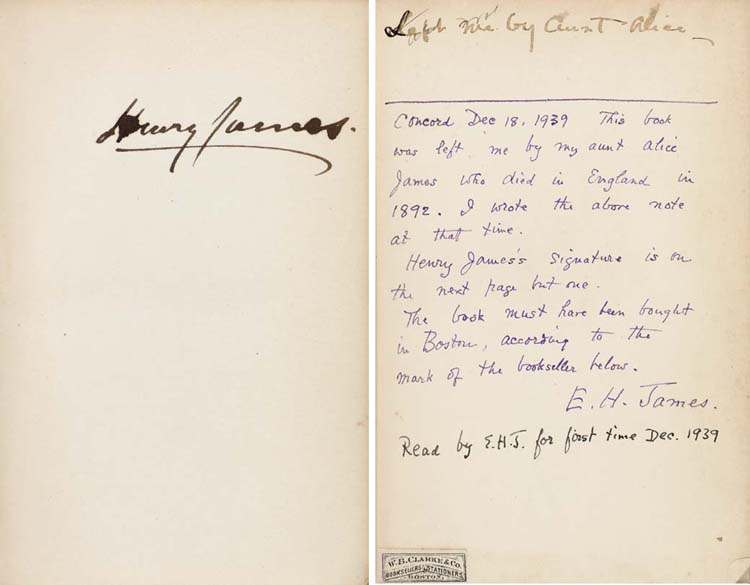 Henry James.
Left me by Aunt Alice
Concord Dec 18, 1939 This book
was left me by my aunt Alice
James who died in England in
1892. I wrote the above note
at that time.
Henry James's signature is on
the next page but one.
The book must have been bought
in Boston, according to the
mark of the bookseller below.
E. H. James.
Read by E.H.J. for first time Dec. 1939
W.B. CLARKE & CO.
BOOKSELLERS & STATIONERS
BOSTON.